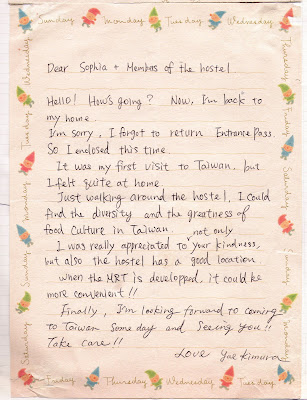 Sunday Monday Tuesday Wednesday
Dear Sophia + Members of the hostel
Hello! How's going? Now, I'm back to
my home.
I'm sorry, I forgot to return Entrance Pass.
So I enclosed this time.
It was my first visit to Taiwan. but
I felt quite at home.
Just walking around the hostel, I could
find the diversity and the greatness of
food culture in Taiwan.
I was really appreciated to not only your kindness,
but also the hostel has a good location
when the MRT is developped, it could be
more convenient!!
Finally, I'm looking forward to coming
to Taiwan someday and seeing you!!
Take care!!
Love Yae Kimura
Wednesday
Tuesday
Monday
Sunday
Saturday
Thursday
Friday
Saturday
Sunday
Monday
Friday Thursday Wednesday Tuesday